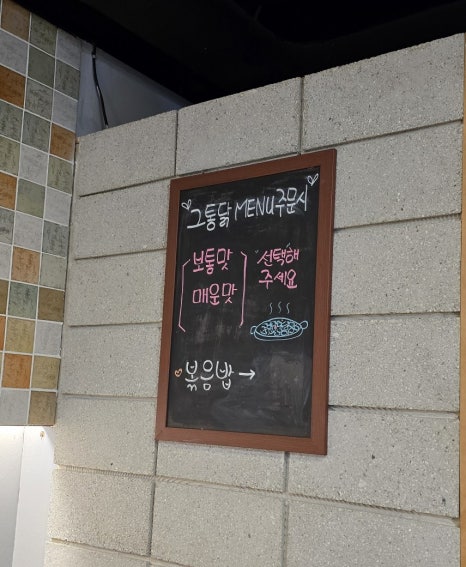 그통닭 MENU 주문시
보통맛
매운맛
선택해
주세요
볶음밥 →